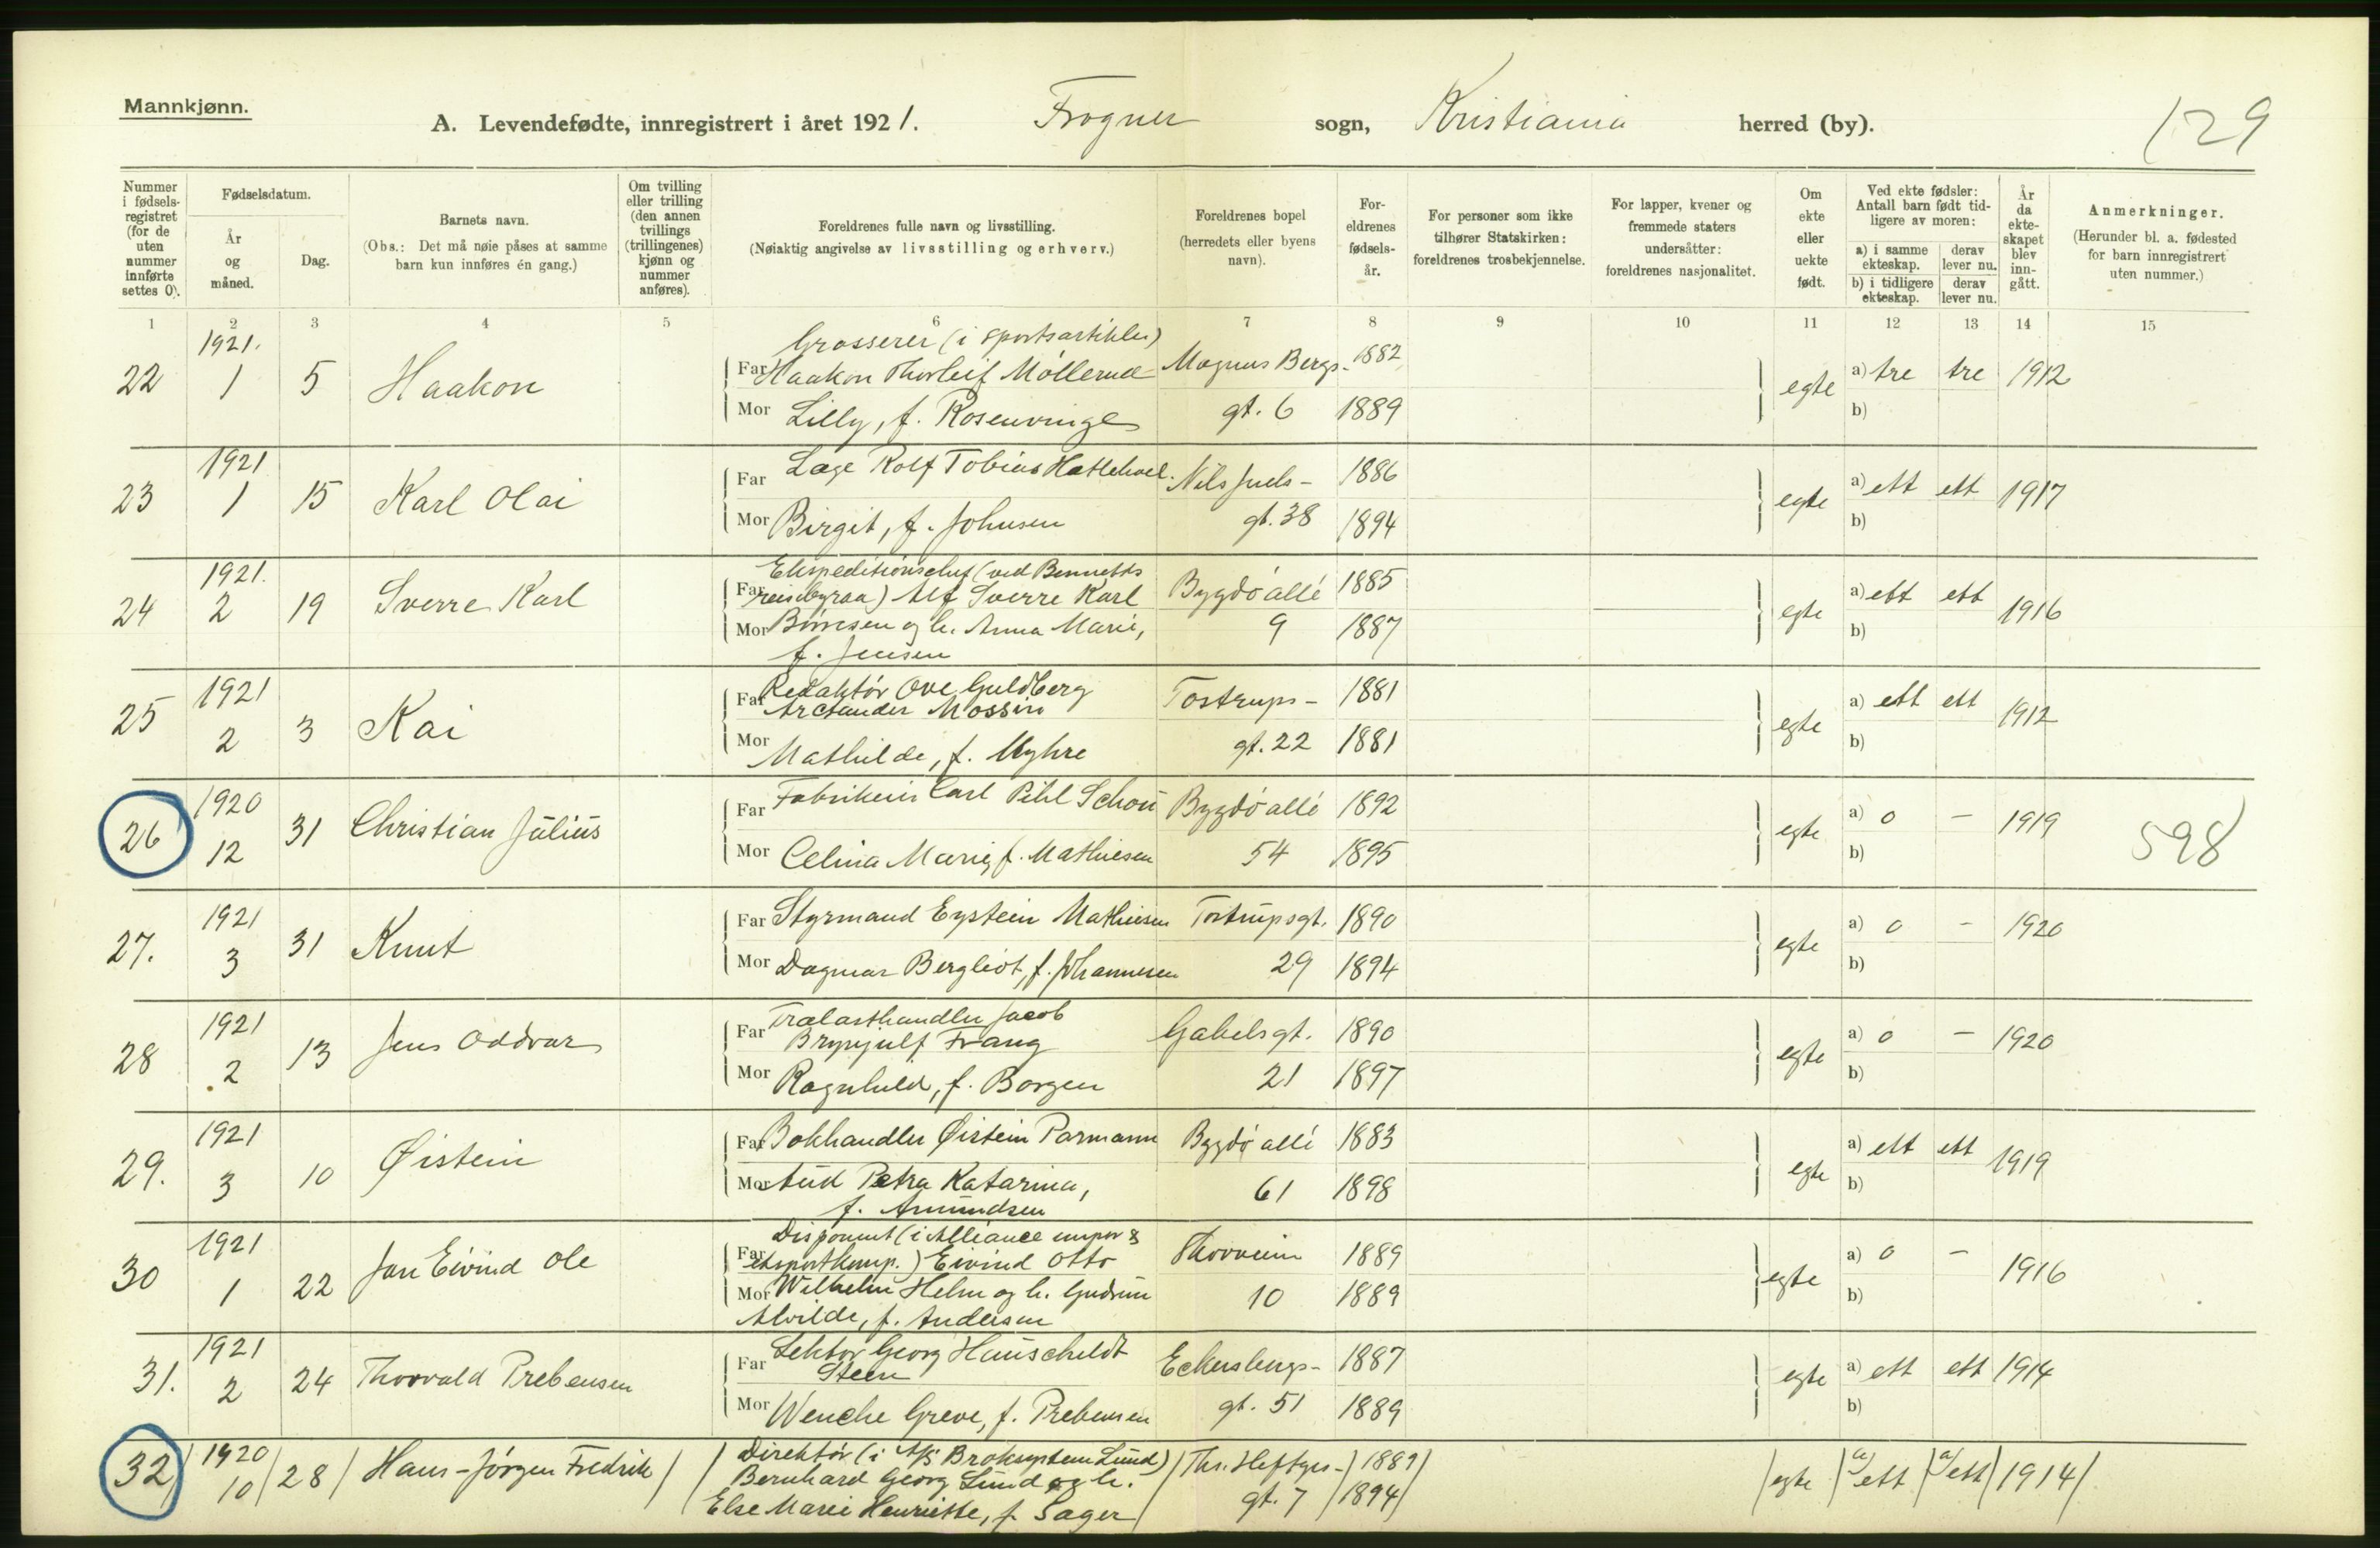 Mannkjønn.
A. Levendefødte, innregistrert i året 1921. Frogner sogn, Kristiania herred (by). 129
Nummer i fødsels-registret (for de uten nummer innførte settes 0).
Fødselsdatum.
År og måned.
Dag.
Barnets navn.
(Obs.: Det må nøie påses at samme barn kun innføres én gang.)
Om tvilling eller trilling (den annen tvillings (trillingenes) kjønn og nummer anføres).
Foreldrenes fulle navn og livsstilling.
(Nøiaktig angivelse av livsstilling og erhverv.)
Foreldrenes bopel (herredets eller byens navn).
For-eldrenes fødsels-år.
For personer som ikke tilhører Statskirken: foreldrenes trosbekjennelse.
For lapper, kvener og fremmede staters undersåtter: foreldrenes nasjonalitet.
Om ekte eller uekte født.
Ved ekte fødsler: Antall barn født tid-ligere av moren:
a) i samme ekteskap. derav lever nu.
b) i tidligere ekteskap. derav lever nu.
År da ekte-skapet blev inn-gått.
Anmerkninger.
(Herunder bl. a. fødested for barn innregistrert uten nummer.)
1 2 3 4 5 6 7 8 9 10 11 12 13 14 15
1921. Grosserer (i sportsartikler)
22 1 5 Haakon Far Haakon Thorleif Möllerud Magnus Bergs- 1882 egte a) tre tre 1912
Mor Lilly, f. Rosenvinge gt. 6 1889 b)
1921 Far Læge Rolf Tobias Hatlehoel Nils Juels- 1886
23 1 15 Karl Olai egte a) ett ett 1917
Mor Birgit, f. Johnsen gt. 38 1894 b)
1921. Ekspeditionschef (ved Bennetts
24 2 19 Sverre Karl Far reisebyraa) Alf Sverre Karl Bygdö allé 1885 egte a) ett ett 1916
Mor Börresen og h. Anna Marie, 9 1887 b)
f. Jensen
1921 Far Redaktör Ove Guldberg Tostrups- 1881
Arctander Mossin
25 2 3 Kai egte a) ett ett 1912
Mor Mathilde, f. Myhre gt. 22 1881 b)
1920 Far Fabrikeier Carl Pihl Schou Bygdö allé 1892
26 12 31 Christian Julius egte a) 0 — 1919 598
Mor Celina Marie, f. Mathiesen 54 1895 b)
1921 Far Styrmand Eystein Mathiesen Tostrupsgt. 1890
27. 3 31 Knut egte a) 0 - 1920
Mor Dagmar Bergliot, f. Johannesen 29 1894 b)
1921 Far Trælasthandler Jacob
Brynjulf Frang Gabelsgt. 1890
28 2 13 Jens Oddvar egte a) 0 — 1920
Mor Ragnhild, f. Borgen 21 1897 b)
1921 Far Bokhandler Øistein Parmann Bygdö allé 1883
29. 3 10 Øistein egte a) ett ett 1919
Mor Aud Petra Katarina, 61 1898 b)
f. Amundsen
1921 Disponent (i Alliance impor &
30 1 22 Jan Eivind Ole Far eksportkomp.) Eivind Otto Thorheim 1889 egte a) 0 — 1916
Mor Wilhelm Helm og h. Gudrun 10 1889 b)
Alvilde, f. Andersen
1921 Far Lektor Georg Hauscheldt
Steen Eckersbergs- 1887
31. 2 24 Thorvald Prebensen egte a) ett ett 1914
Mor Wenche Greve, f. Prebensen gt. 51 1889 b)
1920 Direktör (i A/S Broksystem Lund) Ths. Heftyes- 1889
32 10 28 Hans-Jörgen Fredrik Bernhard Georg Lund og h. egte a) ett a) ett 1914
Else Marie Henriette, f. Sager gt. 7 1894